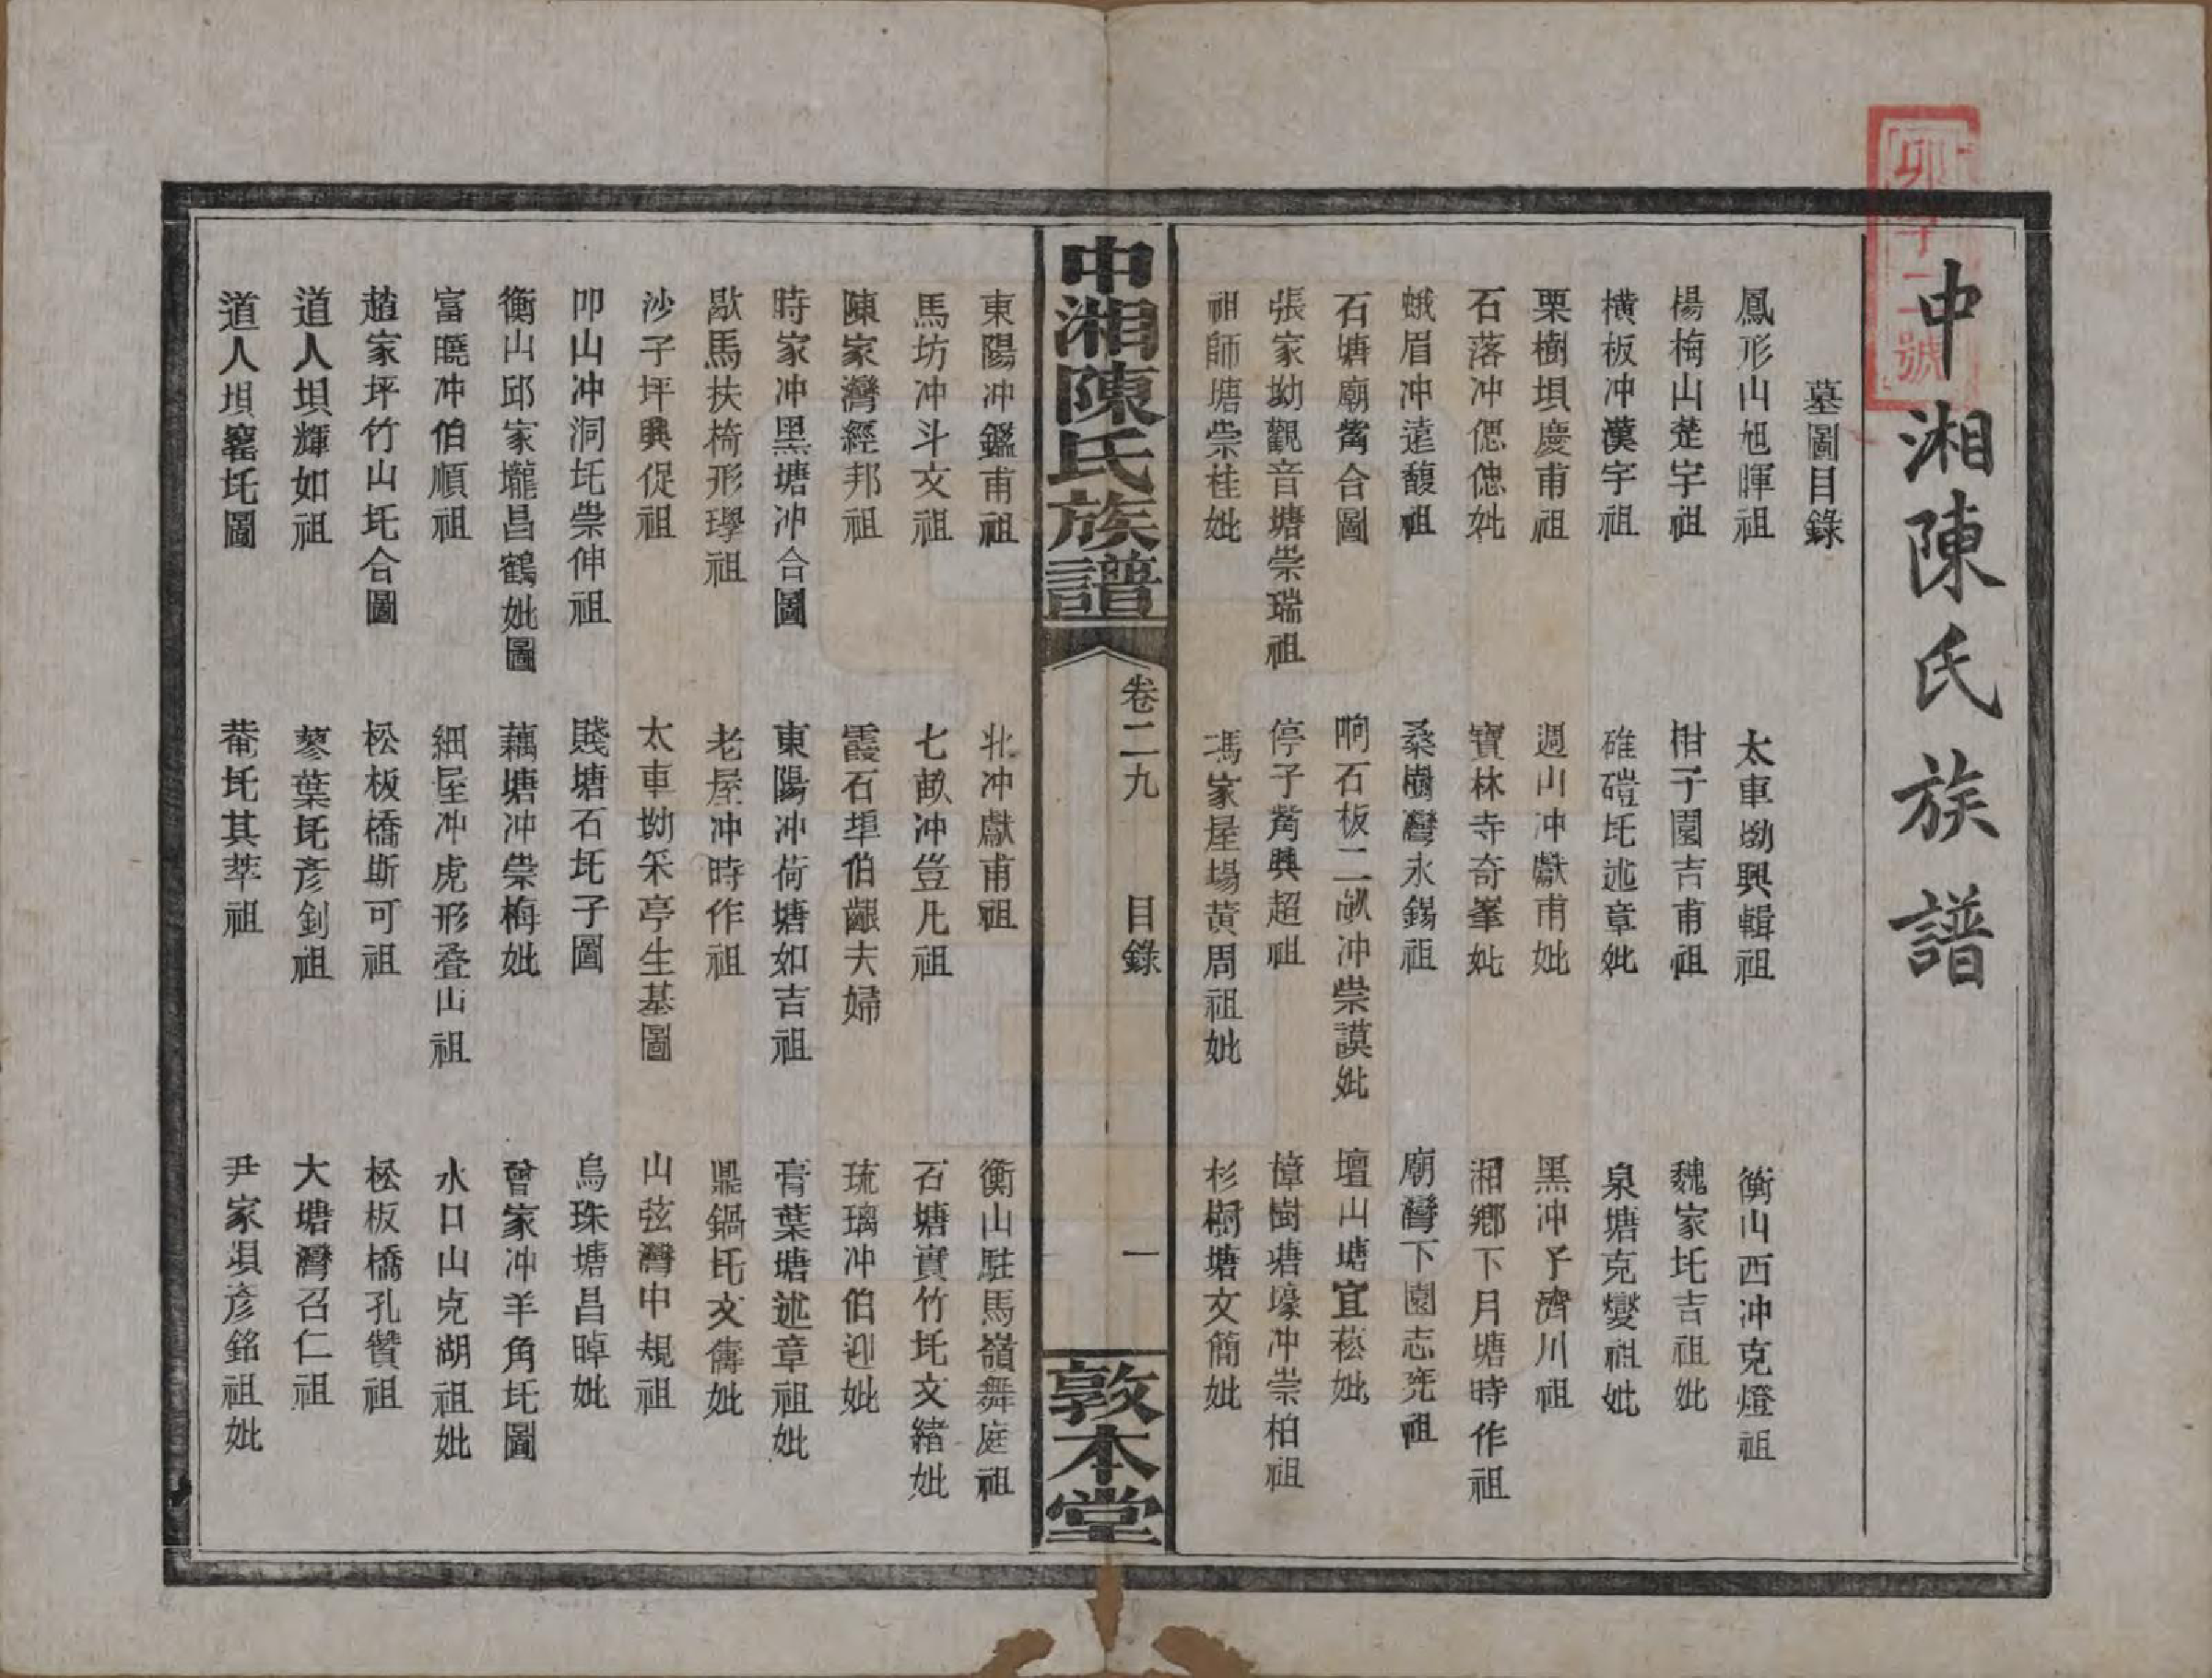 中湘陳氏族譜
墓圖目錄
鳳形山旭暉祖　太車坳興輯祖　衡山西冲克燈祖
楊梅山楚宇祖　柑子園吉甫祖　魏家圫吉祖妣
橫板冲漢宇祖　碓磑圫述章妣　泉塘克燮祖妣
栗樹垻慶甫祖　週山冲獻甫妣　黑冲子濟川祖
石落冲偲偬妣　寶林寺奇峯妣　湘鄉下月塘時作祖
蛾眉冲遠馥祖　桑樹灣永錫祖　廟灣下園志堯祖
石塘廟觜合圖　响石板二畝冲崇謨妣　壇山塘宜菘妣
張家坳觀音塘崇瑞祖　停子觜興超祖　樟樹塘壕冲崇柏祖
祖師塘崇桂妣　馮家屋場黃周祖妣　杉樹塘文簡妣
中湘陳氏族譜　卷二九　目錄　一　敦本堂
東陽冲鑑甫祖　北冲獻甫祖　衡山駐馬嶺舞庭祖
馬坊冲斗文祖　七畝冲豈凡祖　石塘實竹圫文緒妣
陳家灣經邦祖　霞石埠伯齦夫婦　琉璃冲伯迎妣
時家冲黑塘冲合圖　東陽冲荷塘如吉祖　膏葉塘述章祖妣
歇馬扶椅形璕祖　老屋冲時作祖　鼎鍋圫文儔妣
沙子坪興促祖　太車坳采亭生基圖　山弦灣中規祖
叩山冲洞圫崇伸祖　賤塘石圫子圖　烏珠塘昌晫妣
衡山邱家壠昌鶴妣圖　藕塘冲崇梅妣　曾家冲羊角圫圖
富曉冲伯順祖　細屋冲虎形叠山祖　水口山克湖祖妣
趙家坪竹山圫合圖　松板橋斯可祖　松板橋孔贊祖
道人垻輝如祖　蓼葉圫彥釗祖　大塘灣召仁祖
道人垻窰圫圖　菴圫其萃祖　尹家垻彥銘祖妣